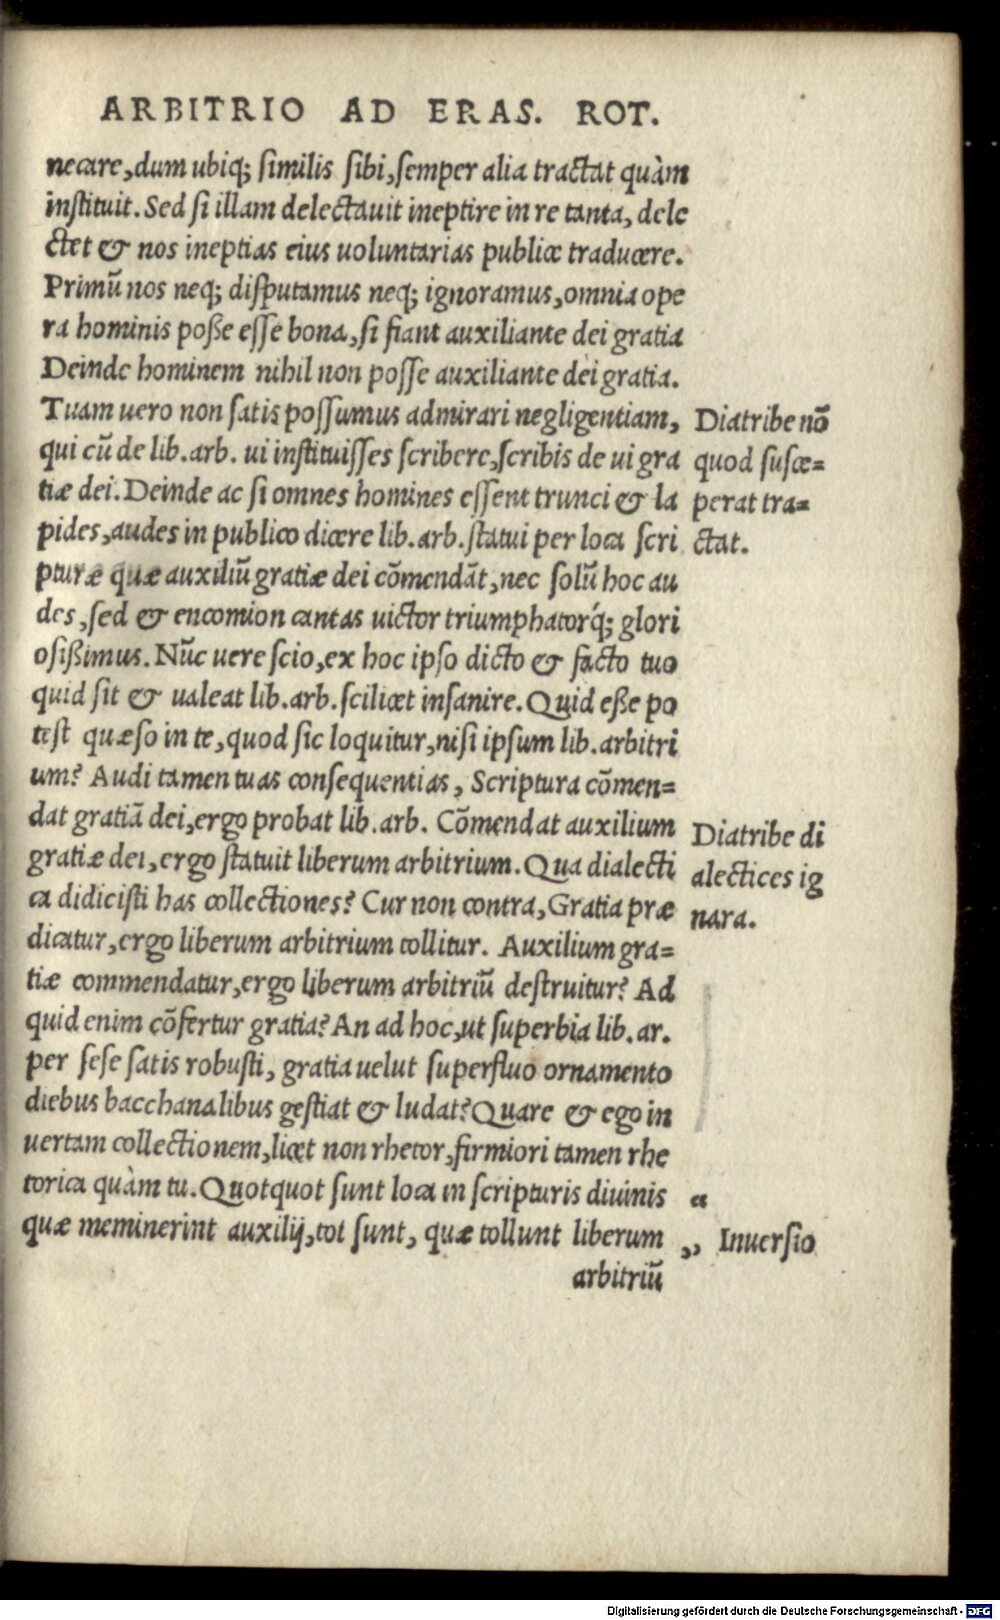 ARBITRIO AD ERAS. ROT.
necare, dum ubiq; similis sibi, semper alia tractat quàm
instituit. Sed si illam delectauit ineptire in re tanta, dele
ctet & nos ineptias eius uoluntarias publice traducere.
Primũ nos neq; disputamus neq; ignoramus, omnia ope
ra hominis poße esse bona, si fiant auxiliante dei gratia
Deinde hominem nihil non posse auxiliante dei gratia.
Tuam uero non satis possumus admirari negligentiam,
qui cũ de lib. arb. ui instituisses scribere, scribis de ui gra
tiæ dei. Deinde ac si omnes homines essent trunci & la
pides, audes in publico dicere lib. arb. statui per loca scri
pturæ quæ auxiliũ gratiæ dei cõmendãt, nec solũ hoc au
des, sed & encomion cantas uictor triumphatorq́; glori
osißimus. Nũc uere scio, ex hoc ipso dicto & facto tuo
quid sit & ualeat lib. arb. scilicet insanire. Quid eße po
test quæso in te, quod sic loquitur, nisi ipsum lib. arbitri
um? Audi tamen tuas consequentias, Scriptura cõmen=
dat gratiã dei, ergo probat lib. arb. Cõmendat auxilium
gratiæ dei, ergo statuit liberum arbitrium. Qua dialecti
ca didicisti has collectiones? Cur non contra, Gratia præ
dicatur, ergo liberum arbitrium tollitur. Auxilium gra=
tiæ commendatur, ergo liberum arbitriũ destruitur? Ad
quid enim cõfertur gratia? An ad hoc, ut superbia lib. ar.
per sese satis robusti, gratia uelut superfluo ornamento
diebus bacchanalibus gestiat & ludat? Quare & ego in
uertam collectionem, licet non rhetor, firmiori tamen rhe
torica quàm tu. Quotquot sunt loca in scripturis diuinis
quæ meminerint auxilij, tot sunt, quæ tollunt liberum
arbitriũ
Diatribe nõ
quod susce=
perat tra=
ctat.
Diatribe di
alectices ig
nara.
„ Inuersio
Digitalisierung gefördert durch die Deutsche Forschungsgemeinschaft - DFG